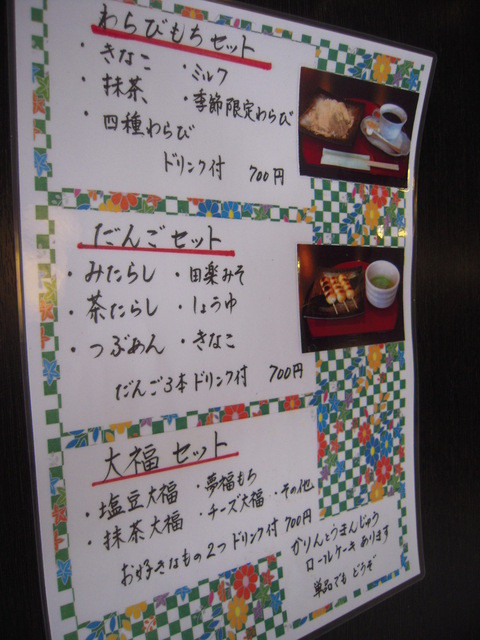 わらびもちセット
・きなこ ・ミルク
・抹茶 ・季節限定わらび
・四種わらび
ドリンク付 700円
だんごセット
・みたらし ・田楽みそ
・茶たらし ・しょうゆ
・つぶあん ・きなこ
だんご3本ドリンク付 700円
大福セット
・塩豆大福 ・夢福もち
・抹茶大福 ・チーズ大福 ・その他
お好きなもの2つドリンク付 700円
かりんとうまんじゅう
ロールケーキあります
単品でもどうぞ